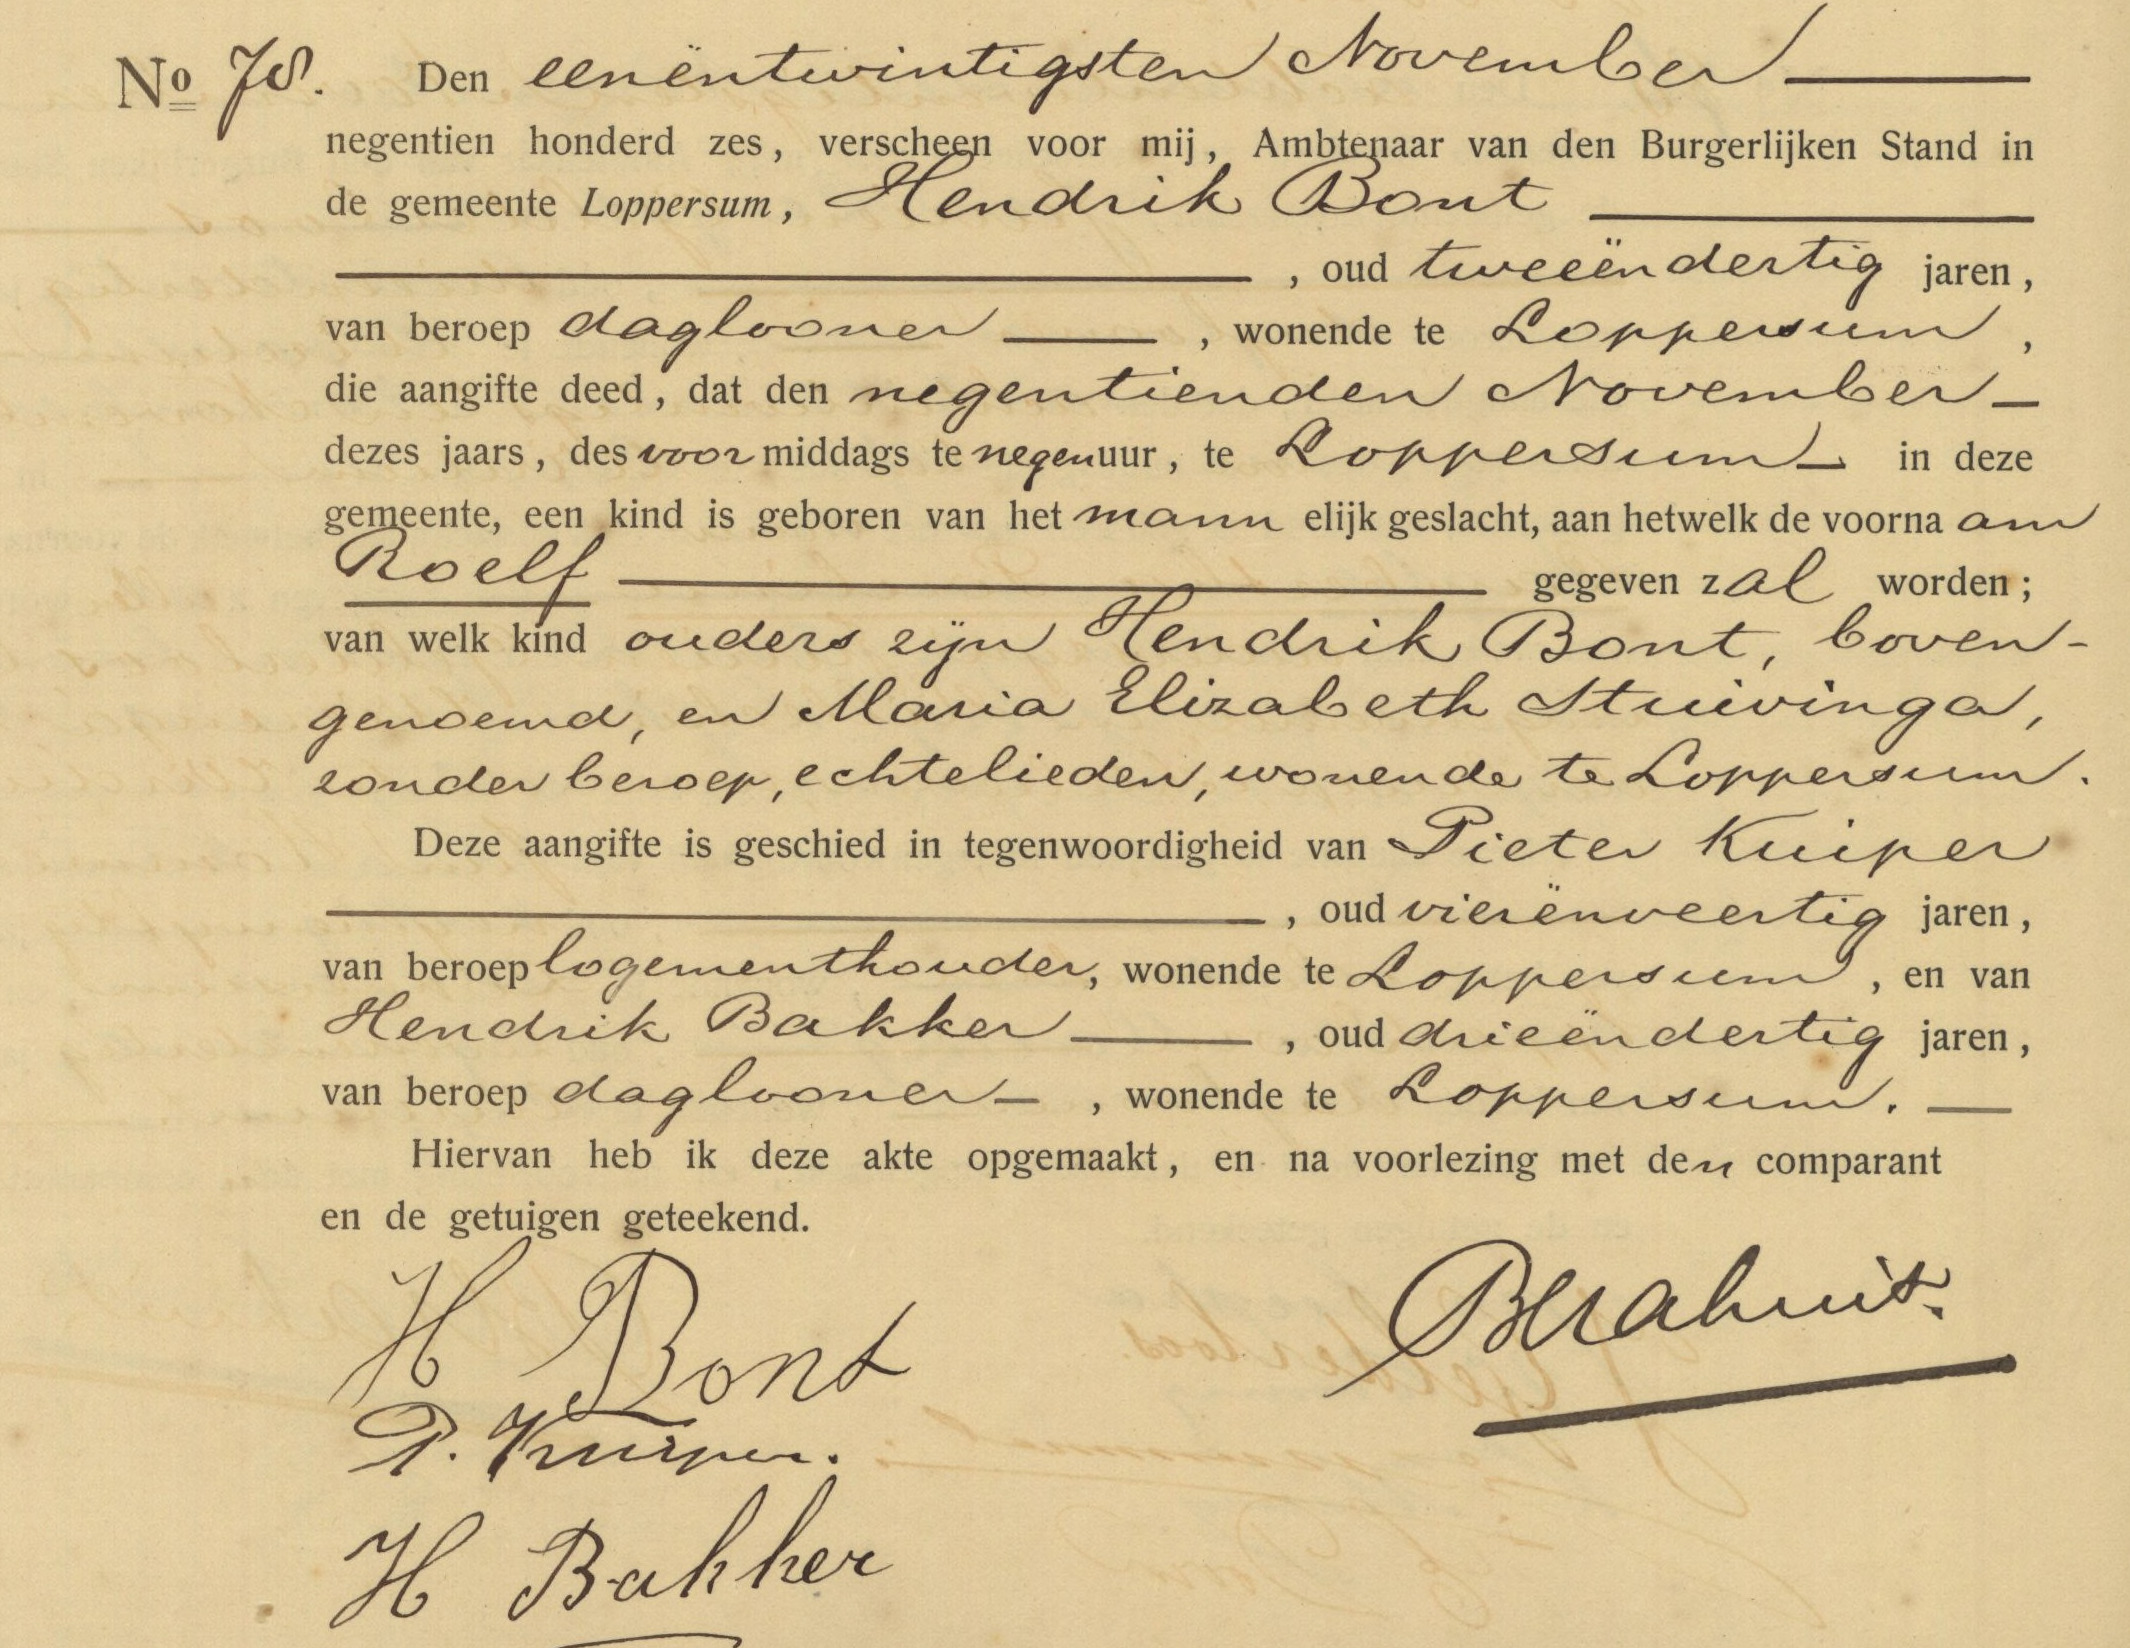 No 78. Den eenëntwintigsten November
negentien honderd zes, verscheen voor mij, Ambtenaar van den Burgerlijken Stand in
de gemeente Loppersum, Hendrik Bont
, oud tweeëndertig jaren,
van beroep daglooner, wonende te Loppersum,
die aangifte deed, dat den negentienden November
dezes jaars, des voormiddags te negen uur, te Loppersum in deze
gemeente, een kind is geboren van het mannelijk geslacht, aan hetwelk de voornaam
Roelf gegeven zal worden;
van welk kind ouders zijn Hendrik Bont, boven-
genoemd, en Maria Elizabeth Stuivinga,
zonder beroep, echtelieden, wonende te Loppersum.
Deze aangifte is geschied in tegenwoordigheid van Pieter Kuiper
, oud vierënveertig jaren,
van beroep logementhouder, wonende te Loppersum, en van
Hendrik Bakker, oud drieëndertig jaren,
van beroep daglooner, wonende te Loppersum.
Hiervan heb ik deze akte opgemaakt, en na voorlezing met den comparant
en de getuigen geteekend.
H Bont
P. Kuiper.
H Bakker